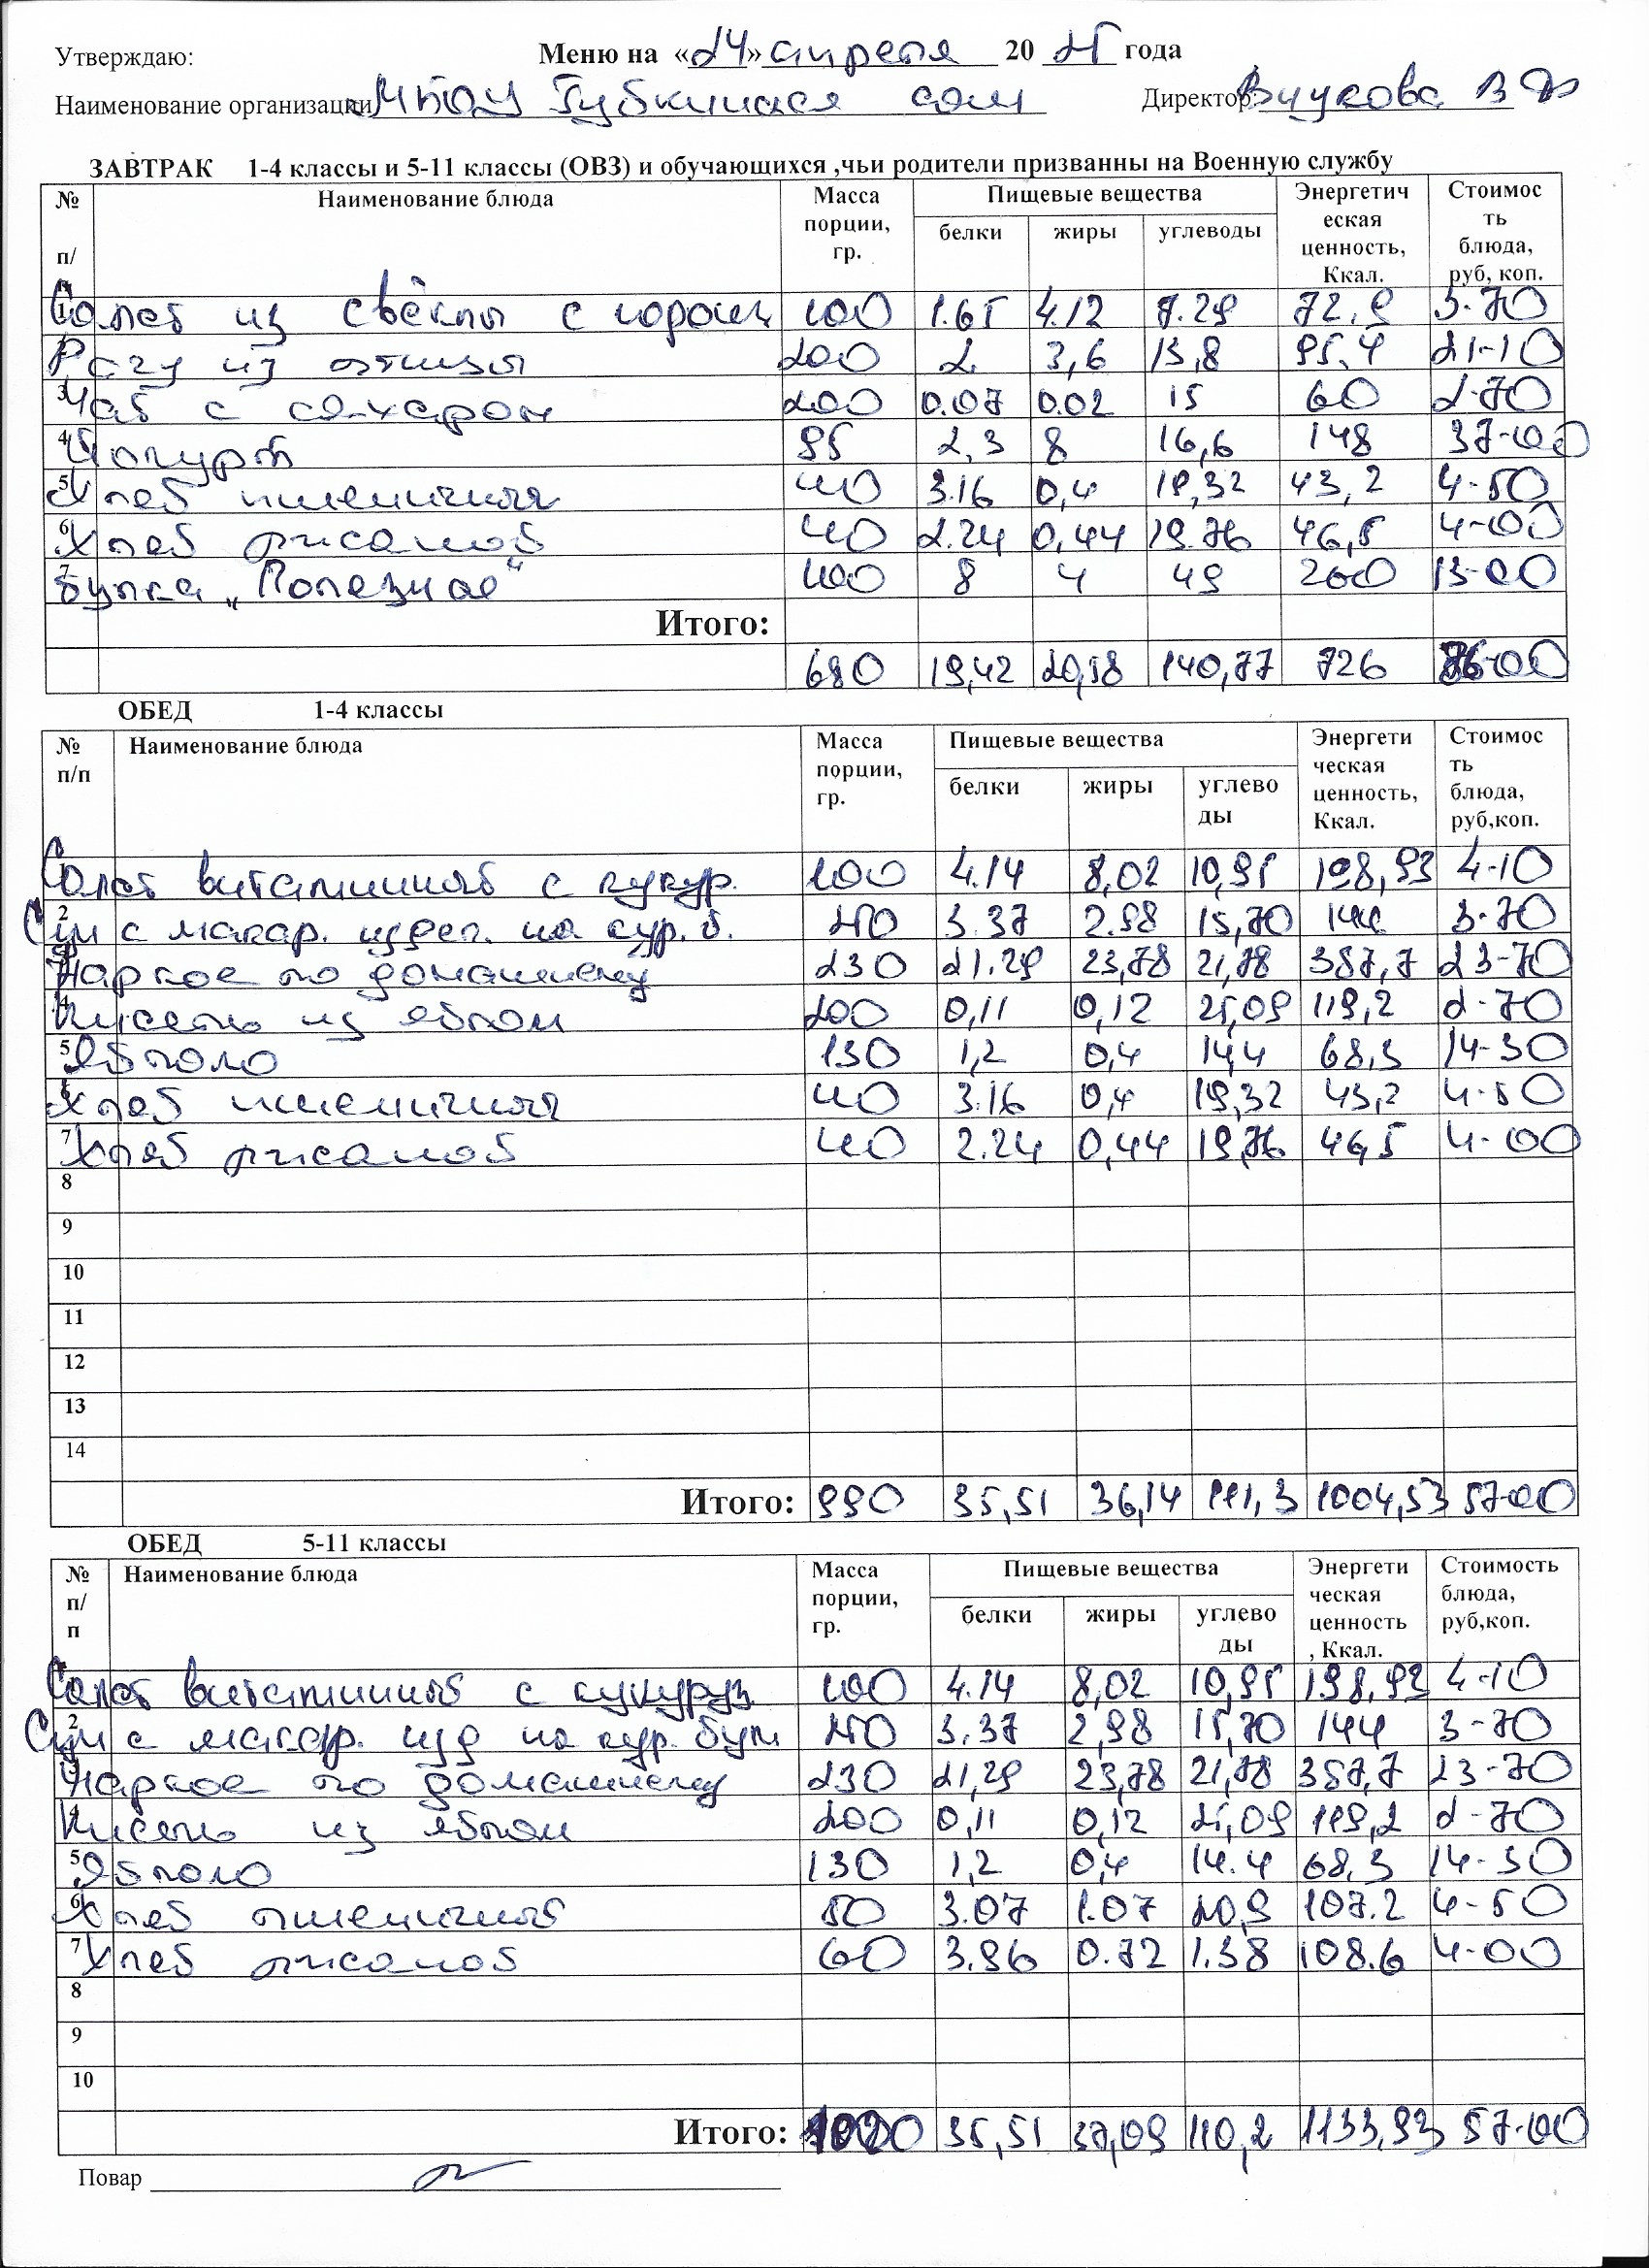 Утверждаю: Меню на «24» апреля 20 25 года
Наименование организации МБОУ Губкинская сош Директор: Внукова В
ЗАВТРАК 1-4 классы и 5-11 классы (ОВЗ) и обучающихся ,чьи родители призванны на Военную службу
№ п/ Наименование блюда Масса порции, гр. Пищевые вещества Энергетич еская ценность, Ккал. Стоимос ть блюда, руб, коп.
белки жиры углеводы
Салат из свёклы с горошк 100 1.65 4.12 7.29 72.9 3-70
Рагу из птицы 200 2 3,6 13,8 95,4 21-10
3 Чай с сахаром 200 0.07 0.02 15 60 2-70
4 Йогурт 95 2,3 8 16,6 148 37-00
5 Хлеб пшеничный 40 3.16 0,4 19,32 43,2 4-50
6 Хлеб ржаной 40 2.24 0,44 19.76 46,5 4-00
7 Булка „Полезная" 100 8 4 49 260 13-00
Итого:
690 19,42 20,58 140,77 726 86-00
ОБЕД 1-4 классы
№ п/п Наименование блюда Масса порции, гр. Пищевые вещества Энергети ческая ценность, Ккал. Стоимос ть блюда, руб,коп.
белки жиры углево ды
Салат витаминный с кукур. 100 4.14 8,02 10,95 198,93 4-10
2 Суп с макар. издел. на кур. б. 250 3.37 2.98 15,70 144 3-70
Жаркое по домашнему 230 21.29 23,78 21,78 387,7 23-70
4 Кисель из яблок 200 0,11 0,12 25,09 119,2 2-70
5 Яблоко 130 1,2 0,4 14,4 68,3 14-30
Хлеб пшеничный 40 3.16 0,4 19,32 43,2 4-50
7 Хлеб ржаной 40 2.24 0,44 19,76 46,5 4-00
8
9
10
11
12
13
14
Итого: 990 35,51 36,14 111,3 1004,53 57-00
ОБЕД 5-11 классы
№ п/ п Наименование блюда Масса порции, гр. Пищевые вещества Энергети ческая ценность , Ккал. Стоимость блюда, руб,коп.
белки жиры углево ды
Салат витаминный с кукуруз 100 4.14 8,02 10,95 198,93 4-10
2 Суп с макар. изд на кур. бул 250 3.37 2,98 15,70 144 3-70
3 Жаркое по домашнему 230 21,29 23,78 21,78 387,7 23-70
4 Кисель из яблок 200 0,11 0,12 25,09 119,2 2-70
5 Яблоко 130 1,2 0,4 14.4 68,3 14-30
6 Хлеб пшеничный 50 3.07 1.07 20,9 107.2 4-50
7 Хлеб ржаной 60 3.96 0.72 1.38 108.6 4-00
8
9
10
Итого: 1020 35,51 37,09 110,2 1133,93 57-00
Повар